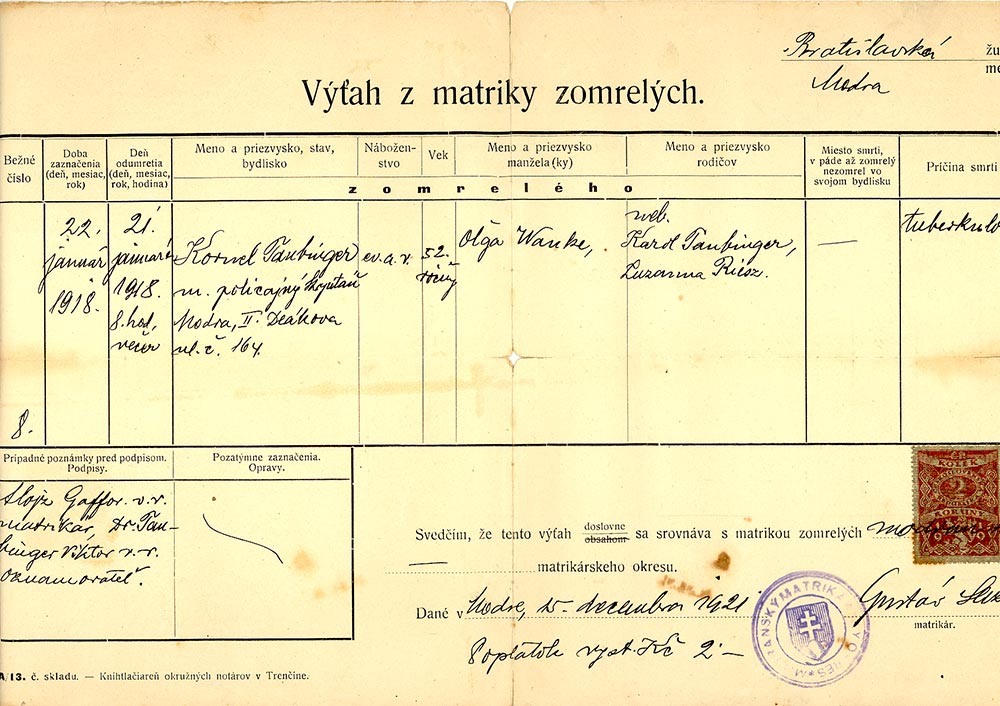 Bratislavská žu
Modra me
Výťah z matriky zomrelých.
Bežné číslo
Doba zaznačenia (deň, mesiac, rok)
Deň odumretia (deň, mesiac, rok, hodina)
Meno a priezvysko, stav, bydlisko
Nábožen-stvo
Vek
Meno a priezvysko manžela (ky)
Meno a priezvysko rodičov
Miesto smrti, v páde až zomrelý nezomrel vo svojom bydlisku
Príčina smrti
zomrelého
8.
22.
január
1918.
21.
január
1918.
8. hod.
večer
Kornel Taubinger
m. policajný kapitáň
Modra, II. Deákova
ul. č. 164.
ev. a. v.
52.
ročný
Oľga Wanke,
neb.
Karol Taubinger,
Zuzanna Riesz.
—
tuberkulo
Prípadné poznámky pred podpisom.
Podpisy.
Pozatýmne zaznačenia.
Opravy.
Alojz Gaffor. v. r.
matrikár, Dr. Tau-
binger Viktor v. r.
oznamovateľ.
KOLEK
2
KORUNY
Svedčím, že tento výťah doslovne obsahom sa srovnáva s matrikou zomrelých
— matrikárskeho okresu.
Dané v Modre, 15. decembra 1921
Gustáv
matrikár.
Poplatok vyst. Kč 2·—
A/13. č. skladu. — Knihtlačiareň okružných notárov v Trenčíne.